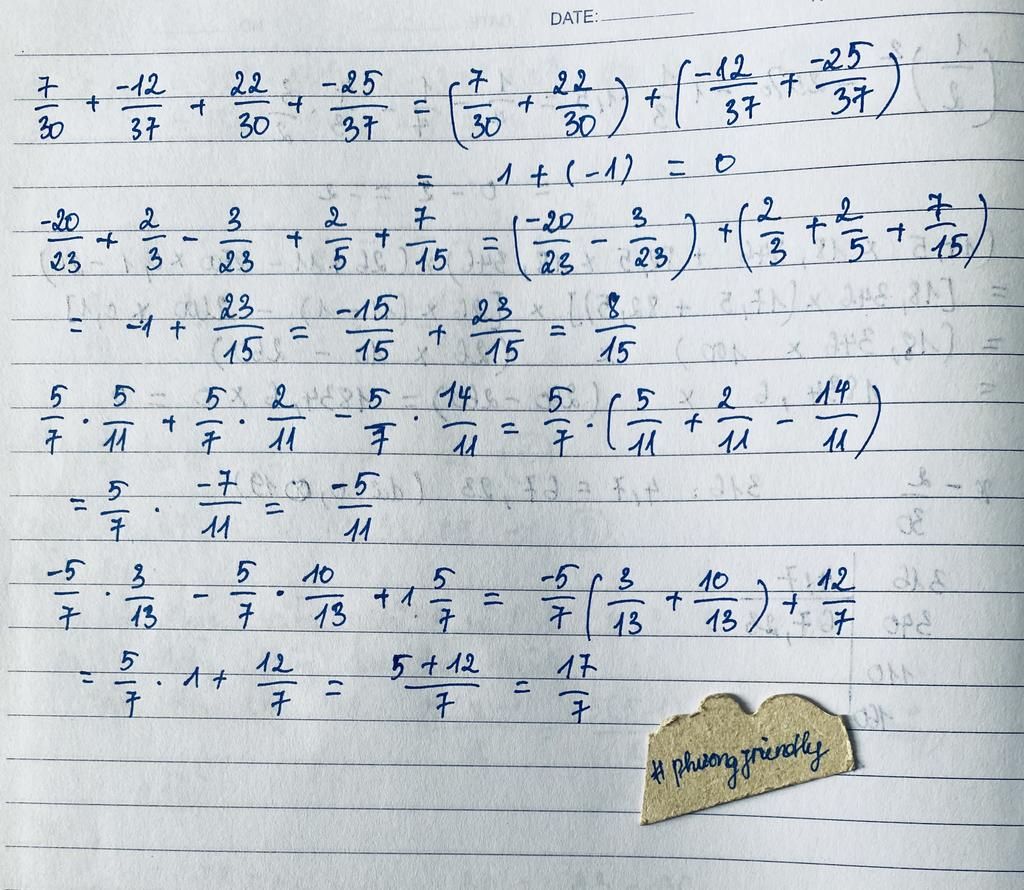 DATE:
7/30 + -12/37 + 22/30 + -25/37 = (7/30 + 22/30) + (-12/37 + -25/37)
= 1 + (-1) = 0
-20/23 + 2/3 - 3/23 + 2/5 + 7/15 = (-20/23 - 3/23) + (2/3 + 2/5 + 7/15)
= -1 + 23/15 = -15/15 + 23/15 = 8/15
5/7 . 5/11 + 5/7 . 2/11 - 5/7 . 14/11 = 5/7 . (5/11 + 2/11 - 14/11)
= 5/7 . -7/11 = -5/11
-5/7 . 3/13 - 5/7 . 10/13 + 1 5/7 = -5/7 (3/13 + 10/13) + 12/7
= 5/7 . 1 + 12/7 = 5 + 12/7 = 17/7
# phuong friendly